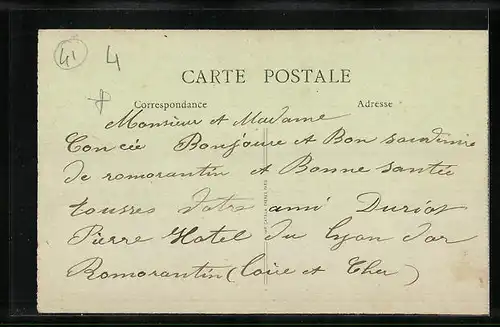 41 4
CARTE POSTALE
Correspondance Adresse
Monsieur et Madame
Concée Bonjoure et Bon souvenire
de romorantin et Bonne santée
tousses Votre ami Duriot
Pierre Hotel du Lyon dor
Romorantin (Loire et Cher)